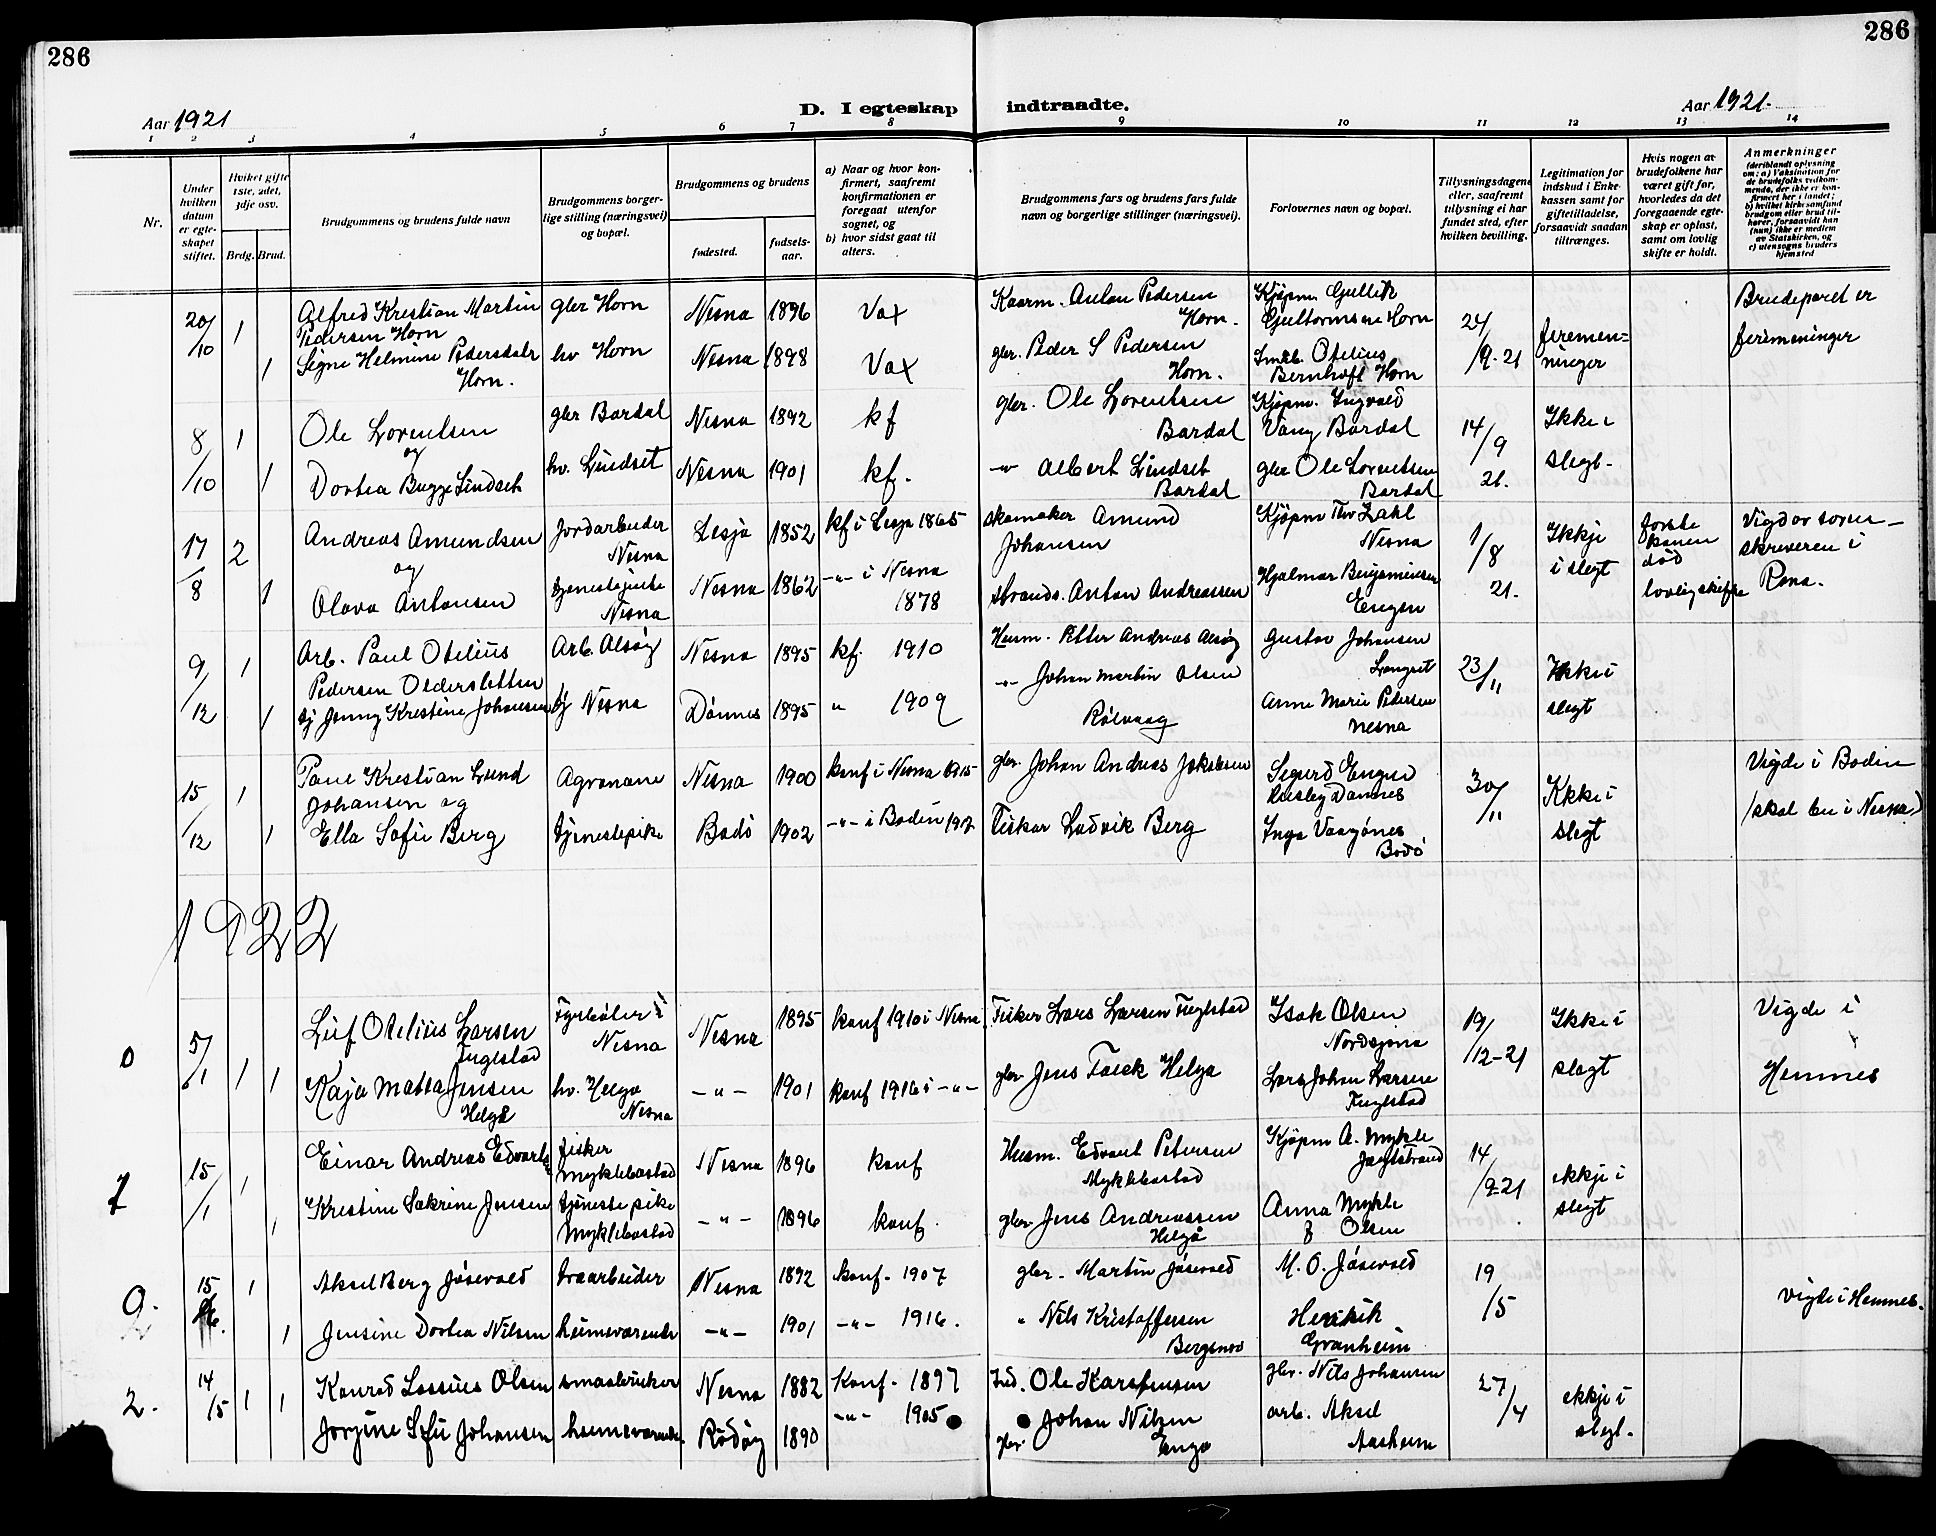 286
286
Aar 1921
D. I egteskap indtraadte.
Aar 1921.
1 2 3 4 5 6 7 8 9 10 11 12 13 14
Nr.
Under hvilken datum er egteskapet stiftet.
Hvilket gifte 1ste, 2det, 3dje osv.
Brdg. Brud.
Brudgommens og brudens fulde navn
Brudgommens borgerlige stilling (næringsvei) og bopæl.
Brudgommens og brudens
fødested.
fødselsaar.
a) Naar og hvor konfirmert, saafremt konfirmationen er foregaat utenfor sognet, og
b) hvor sidst gaat til alters.
Brudgommens fars og brudens fars fulde navn og borgerlige stillinger (næringsvei).
Forlovernes navn og bopæl.
Tillysningsdagene eller, saafremt tillysning ei har fundet sted, efter hvilken bevilling.
Legitimation for indskud i Enkekassen samt for giftetilladelse, forsaavidt saadan tiltrænges.
Hvis nogen av brudefolkene har været gift før, hvorledes da det foregaaende egteskap er opløst, samt om lovlig skifte er holdt.
Anmerkninger (deriblandt oplysning om: a) Vaksination for de brudefolks vedkommende, der ikke er konfirmert her i landet; b) hvilket kirkesamfund brudgom eller brud tilhører, forsaavidt han (hun) ikke er medlem av Statskirken, og c) utensogns bruders hjemsted
20/10 1 Alfred Kristian Martin Pedersen Horn gbr Horn Nesna 1896 Vax Kaarm. Anton Pedersen Horn. Kjøpm Gullik Guttormsen Horn 24/9-21 feremenninger Brudeparet er feremenninger
1 Signe Helmine Pedersdatr Horn. hv Horn Nesna 1898 Vax gbr. Peder S Pedersen Horn. Smkb. Otelius Bernhoft Horn
8/10 1 Ole Lorentsen og gbr Bardal Nesna 1892 kf gbr. Ole Lorentsen Bardal Kjøpm. Ingvald Vang Bardal 14/9 21. Ikke i slegt.
1 Dortea Bugge Lindset hv. Lindset Nesna 1901 kf. -"- Albert Lindset Bardal gbr Ole Lorentsen Bardal
17/8 2 Andreas Amundsen og Jordarbeider Nesna Lesja 1852 kf i Lesja 1865 skomaker Amund Johansen Kjøpm Thv Zahl Nesna 1/8 21. Ikkje i slegt første konen død lovlig skifte Vigd av sorenskriveren i Rana.
1 Olava Antonsen tjenestejente Nesna Nesna 1862 -"- i Nesna 1878 strands. Anton Andreassen Hjalmar Benjaminsen Engen
9/12 1 Arb. Paul Otelius Pedersen Oldersletten Arb. Alsøy Nesna 1895 kf. 1910 Husm. Petter Andreas Alsøy Gustav Johansen Langset 23/11 Ikke i slegt
1 tj Jenny Kristine Johansen tj Nesna Dønnes 1895 " 1909 -"- Johan Martin Olsen Rølvaag Anne Marie Pedersen Nesna
15/12 1 Paul Kristian Lund Johansen og Agronom Nesna 1900 konf i Nesna 1915 gbr. Johan Andreas Jakobsen Sigurd Engen Dønnes 30/11 Ikke i slegt Vigde i Bodin (skal bu i Nesna)
1 Ella Sofie Berg tjenestepike Bodø 1902 -"- i Bodin Fisker Ludvik Berg Inga Vaagønes Bodø
1922
0 5/1 1 1 Leif Otelius Larsen Fuglstad Fyrbøter i Nesna Nesna 1895 konf 1910 i Nesna Fisker Lars Larsen Fuglstad Isak Olsen Nordsjona 19/12-21 Ikke i slegt Vigde i Hemnes
Kaja Matea Jensen Helgå hv. Helgå Nesna -"- 1901 konf 1916 i -"- gbr Jens Falck Helgå Lars Johan Larsen Fuglstad
7 15/1 1 Einar Andreas Edvards fisker Myklebostad Nesna 1896 konf Husm. Edvart Petersen Myklebostad Kjøpm A. Mykle Jægtstrand 14/9-21 ikkje i slegt
1 Kristine Sakrine Jensen tjenestepike Myklebostad -"- 1896 konf. gbr. Jens Andreassen Helgå Anna Mykle f Olsen
9. 15/6. 1 Aksel Berg Jøsevold traarbeider Nesna 1892 konf. 1907 gbr. Martin Jøsevold M. O. Jøsevold 19/5 Vigde i Hemnes.
1 Jensine Dortea Nilsen heimeværende -"- 1901 -"- 1916. " Nils Kristoffersen Bergsnov Henrik Granheim
2. 14/5 1 1 Konrad Lassius Olsen smaabruker Nesna 1882 Konf. 1897 Ind. Ole Karstensen gbr. Nils Johansen 27/4 ikkje i slegt.
Jorgine Sofie Johansen heimeværende Rødøy 1890 -"- 1905 gbr Johan Nilsen Enga arb. Aksel Aasheim